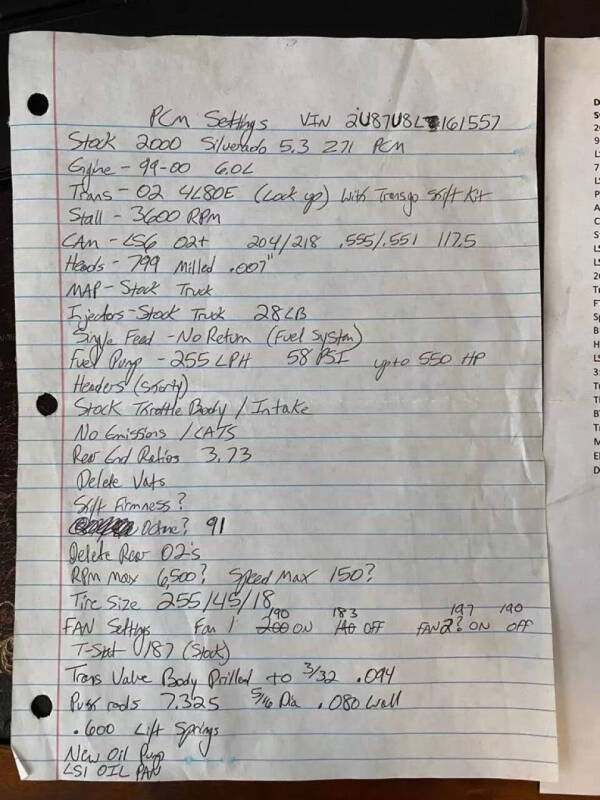 PCM Settings VIN 2U87U8L 161557
Stock 2000 Silverado 5.3 Z71 PCM
Engine - 99-00 6.0L
Trans - 02 4L80E (Lock up) with Transgo Shift Kit
Stall - 3600 RPM
CAM - LS6 02+ 204/218 .555/.551 117.5
Heads - 799 Milled .007"
MAP - Stock Truck
Injectors - Stock Truck 28LB
Single Feed - No Return (Fuel System)
Fuel Pump - 255 LPH 58 PSI up to 550 HP
Headers (Shorty)
Stock Throttle Body / Intake
No Emissions / CATS
Rear End Ratios 3.73
Delete Vats
Shift Firmness?
Octane? 91
Delete Rear O2's
RPM max 6,500? Speed Max 150?
Tire Size 255/45/18
190 183 197 190
FAN Settings Fan 1 200 ON OFF FAN 2? ON OFF
T-Stat 187 (Stock)
Trans Valve Body Drilled to 3/32 .094
Push rods 7.325 5/16 Dia .080 Wall
.600 Lift Springs
New Oil Pump
LS1 OIL PAN